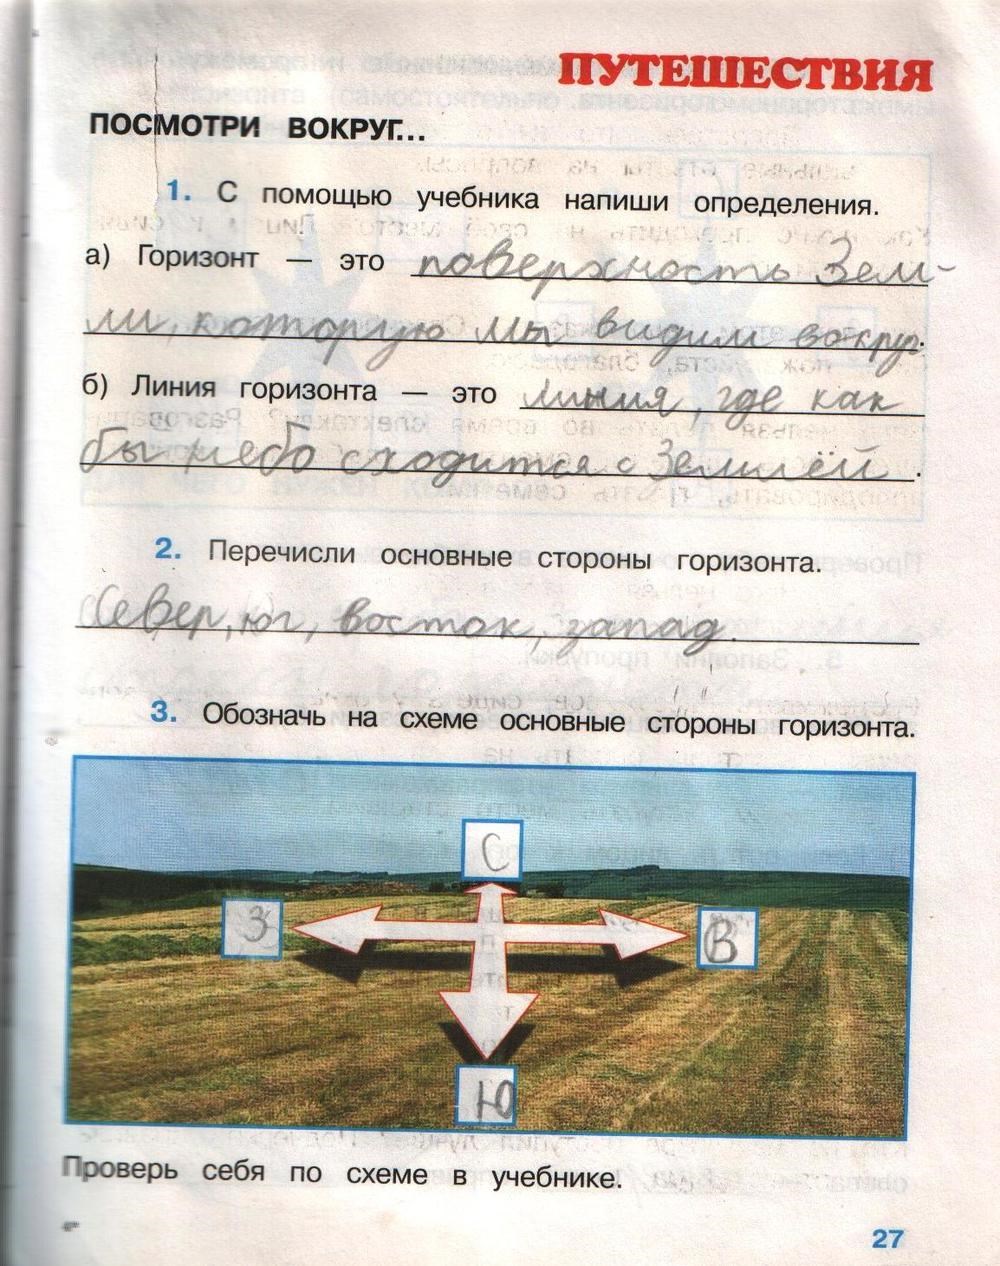 ПУТЕШЕСТВИЯ
ПОСМОТРИ ВОКРУГ...
1. С помощью учебника напиши определения.
а) Горизонт — это поверхность Зем-
ли, которую мы видим вокруг.
б) Линия горизонта — это линия, где как
бы небо сходится с Землёй.
2. Перечисли основные стороны горизонта.
Север, юг, восток, запад.
3. Обозначь на схеме основные стороны горизонта.
С
З
В
Ю
Проверь себя по схеме в учебнике.
27